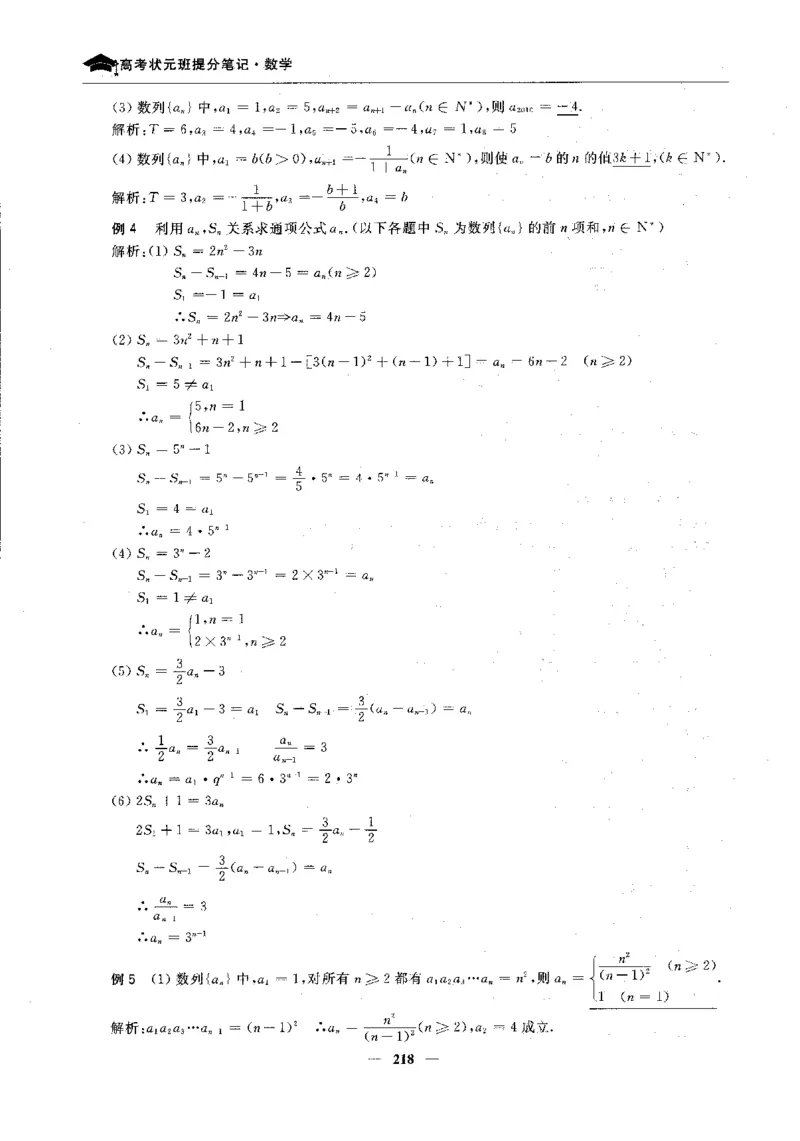 高考状元班提分笔记·数学
(3) 数列{aₙ}中,a₁ = 1,a₂ = 5,aₙ₊₂ = aₙ₊₁ − aₙ(n ∈ N*),则 a₂₀₁₀ = −4.
解析:T = 6,a₃ = 4,a₄ = −1,a₅ = −5,a₆ = −4,a₇ = 1,a₈ = 5
(4) 数列{aₙ}中,a₁ = b(b > 0),aₙ₊₁ = − 1/(1 + aₙ) (n ∈ N*),则使 aₙ = b 的 n 的值3k + 1,(k ∈ N*).
解析:T = 3,a₂ = − 1/(1+b),a₃ = − (b+1)/b,a₄ = b
例 4 利用 aₙ,Sₙ 关系求通项公式 aₙ.(以下各题中 Sₙ 为数列{aₙ}的前 n 项和,n ∈ N*)
解析:(1) Sₙ = 2n² − 3n
Sₙ − Sₙ₋₁ = 4n − 5 = aₙ(n ⩾ 2)
S₁ = −1 = a₁
∴Sₙ = 2n² − 3n⇒aₙ = 4n − 5
(2) Sₙ = 3n² + n + 1
Sₙ − Sₙ₋₁ = 3n² + n + 1 − [3(n − 1)² + (n − 1) + 1] = aₙ = 6n − 2 (n ⩾ 2)
S₁ = 5 ≠ a₁
∴aₙ = {5,n = 1
6n − 2,n ⩾ 2
(3) Sₙ = 5ⁿ − 1
Sₙ − Sₙ₋₁ = 5ⁿ − 5ⁿ⁻¹ = 4/5 · 5ⁿ = 4 · 5ⁿ⁻¹ = aₙ
S₁ = 4 = a₁
∴aₙ = 4 · 5ⁿ⁻¹
(4) Sₙ = 3ⁿ − 2
Sₙ − Sₙ₋₁ = 3ⁿ − 3ⁿ⁻¹ = 2 × 3ⁿ⁻¹ = aₙ
S₁ = 1 ≠ a₁
∴aₙ = {1,n = 1
2 × 3ⁿ⁻¹,n ⩾ 2
(5) Sₙ = 3/2 aₙ − 3
S₁ = 3/2 a₁ − 3 = a₁ Sₙ − Sₙ₋₁ = 3/2 (aₙ − aₙ₋₁) = aₙ
∴ 1/2 aₙ = 3/2 aₙ₋₁ aₙ/aₙ₋₁ = 3
∴aₙ = a₁ · qⁿ⁻¹ = 6 · 3ⁿ⁻¹ = 2 · 3ⁿ
(6) 2Sₙ + 1 = 3aₙ
2S₁ + 1 = 3a₁,a₁ = 1,Sₙ = 3/2 aₙ − 1/2
Sₙ − Sₙ₋₁ = 3/2 (aₙ − aₙ₋₁) = aₙ
∴ aₙ/aₙ₋₁ = 3
∴aₙ = 3ⁿ⁻¹
例 5 (1) 数列{aₙ}中,a₁ = 1,对所有 n ⩾ 2 都有 a₁a₂a₃⋯aₙ = n²,则 aₙ = {n²/(n − 1)² (n ⩾ 2)
1 (n = 1) .
解析:a₁a₂a₃⋯aₙ₋₁ = (n − 1)² ∴aₙ = n²/(n − 1)² (n ⩾ 2),a₂ = 4 成立.
— 218 —